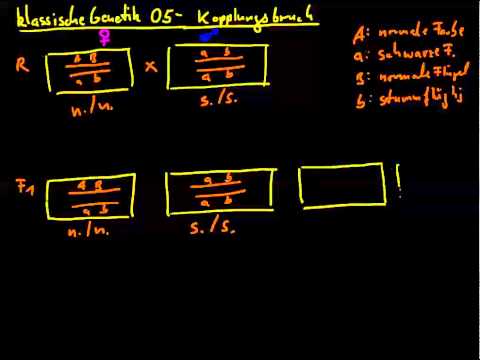 klassische Genetik 05 - Kopplungsbruch
♀ ♂
A: normale Farbe
a: schwarze F.
B: normale Flügel
b: stummflüglig
R
A B
a b
x
a b
a b
n./n. s./s.
F1
A B
a b
a b
a b
!
n./n. s./s.